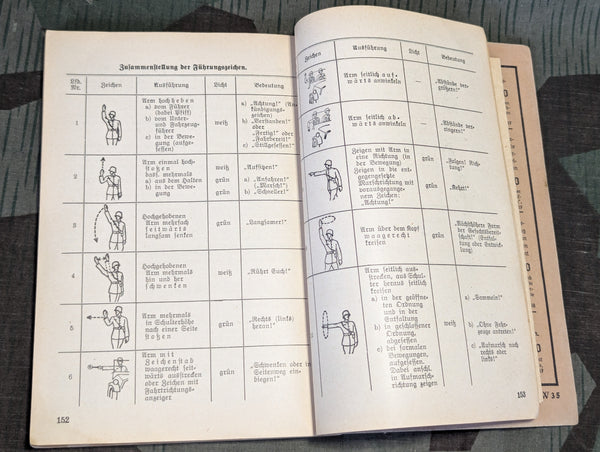 Zusammenstellung der Führungszeichen.
Lfd. Nr.
Zeichen
Ausführung
Licht
Bedeutung
1
Arm hochheben
a) vom Führer
(dabei Pfiff)
b) vom Unter-
und Fahrzeug-
führer
c) in der Bewe-
gung (aufge-
sessen)
weiß
a) „Achtung!" (An-
kündigungs-
zeichen)
b) „Verstanden!"
oder
„Fertig!" oder
„Fahrbereit!"
c) „Stillgesessen!"
2
Arm einmal hoch-
stoßen
dasf. mehrmals
a) aus dem Halten
b) in der Bewe-
gung
weiß
grün
grün
„Aufsitzen!"
a) „Anfahren!"
(„Marsch!")
b) „Schneller!"
3
Hochgehobenen
Arm mehrfach
seitwärts
langsam senken
grün
„Langsamer!"
4
Hochgehobenen
Arm mehrmals
hin und her
schwenken
weiß
„Rührt Euch!"
5
Arm mehrmals
in Schulterhöhe
nach einer Seite
stoßen
grün
„Rechts (links)
heran!"
6
Arm mit
Zeichenstab
waagerecht seit-
wärts ausstrecken
oder Zeichen mit
Fahrtrichtungs-
anzeiger
grün
„Schwenken oder in
Seitenweg ein-
biegen!"
152
Zeichen
Ausführung
Licht
Bedeutung
Arm seitlich auf-
wärts anwinkeln
—
„Abstände ver-
größern!"
Arm seitlich ab-
wärts anwinkeln
—
„Abstände ver-
Zeigen mit Arm in
eine Richtung (in
der Bewegung)
Zeigen in die ent-
gegengesetzte
Marschrichtung mit
vorausgegange-
nem Zeichen:
„Achtung!"
grün
grün
„(Folgen) Rich-
tung!"
„Kehrt!"
Arm über dem Kopf
waagerecht
kreisen
grün
der Gefechtsbereit-
schaft!" (Entfal-
tung oder Entwick-
lung)
Arm seitlich aus-
strecken, aus Schul-
ter heraus seitlich
kreisen
a) in der geöffne-
ten Ordnung
und in der
Entfaltung
b) in geschlossener
Ordnung,
abgesessen
c) bei formalen
Bewegungen,
aufgesessen.
Dabei anschl.
in Aufmarsch-
richtung zeigen
weiß
a) „Sammeln!"
b) „Ohne Fahr-
zeuge antreten!"
c) „Aufmarsch nach
rechts oder
links!"
153
W 35